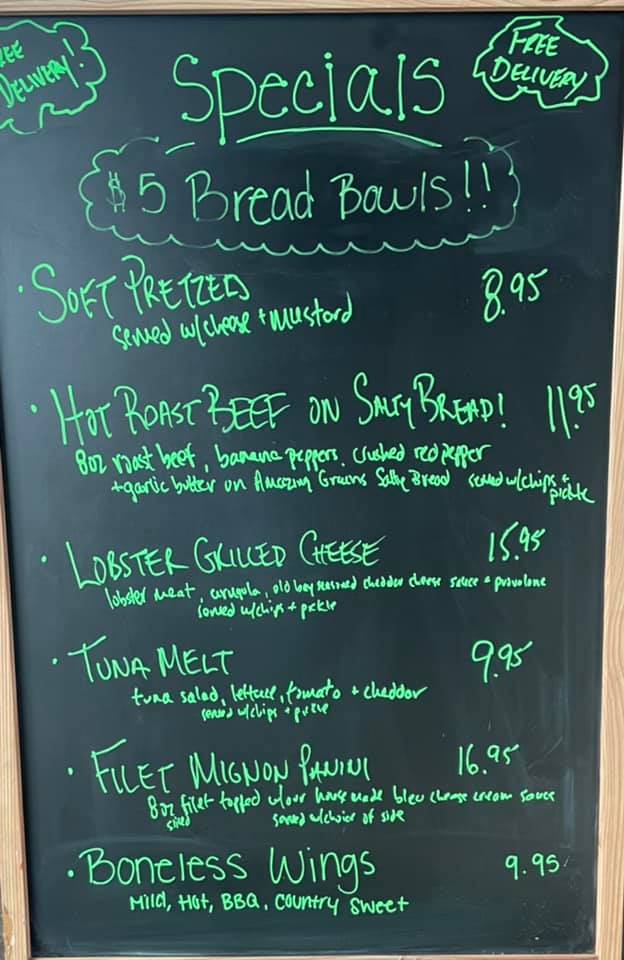 FREE DELIVERY!
FREE DELIVERY
Specials
$5 Bread Bowls!!
• SOFT PRETZELS 8.95
served w/cheese + mustard
• HOT ROAST BEEF ON SALTY BREAD! 11.95
8oz roast beef, banana peppers, crushed red pepper
+garlic butter on Amazing Grains Salty Bread served w/chips + pickle
• LOBSTER GRILLED CHEESE 15.95
lobster meat, arugula, old bay seasoned cheddar cheese sauce + provolone
served w/chips + pickle
• TUNA MELT 9.95
tuna salad, lettuce, tomato + cheddar
served w/chips + pickle
• FILET MIGNON PANINI 16.95
8oz sliced filet topped w/our house made bleu cheese cream sauce
served w/choice of side
• Boneless Wings 9.95
Mild, Hot, BBQ, Country Sweet